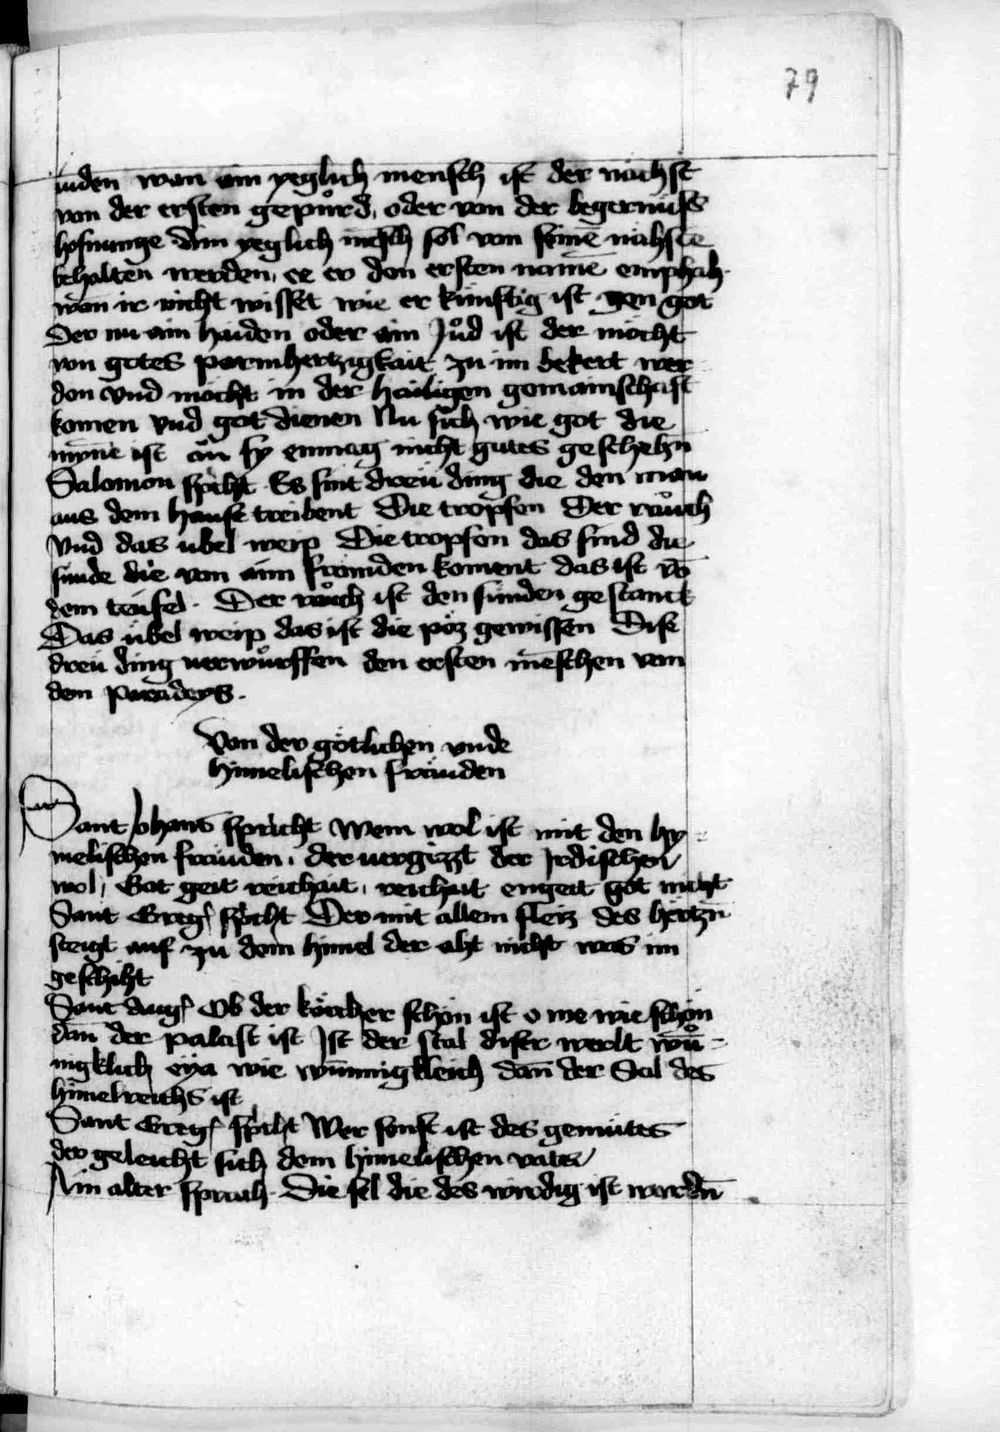 79
iuden wan ain yeglich mensch ist der nächst
von der ersten gepůrd, oder von der begernuss
hofnunge Ain yeglich mẽsch sol von seinẽ nähste
behalten werden, ee er den ersten namẽ emphah.
wan ir nicht wisset wie er künftig ist gen got
Der nu ain haiden oder ain Jůd ist der möcht
von gotes parmhertzigkait zu im bekert wer
den vnd möcht in der heiligen gemainschaft
komen vnd got dienen Nu sich wie got die
mynne ist an sy enmag nicht gutes geschehn
Salomon spricht Es sint dreü ding die den man
aus dem hause treibent Die tropfen Der rauch
Vnd das übel weip Die tropfen das sind die
sünde die von aim främden koment das ist võ
dem teüfel. Der rauch ist den sünden gestanck
Das übel weip das ist die pöz gewissen Dise
dreü ding verwůrffen den ersten mẽschen von
dem paradeys.
Von der götlichen vnde
himelischen fräuden
Sant Johans spricht Wem wol ist mit den hy
melischen fräuden, der vergizzt der Irdischen
wol, Got geit reichait, reichait engeit got nicht
Sant Greg spricht Der mit allem fleiz des hertzñ
steigt auf zu dem himel der aht nicht was im
geschiht
Sant Aug Ob der körcher schön ist o we wie schön
dañ der palast ist Ist der stal diser werlt wũ
nigklich eya wie wünnigkleich dañ der Sal des
himelreichs ist
Sant Greg spricht Wer senft ist des gemütes
der geleicht sich dem himelischen vater
Ain alter sprach. Die sel die des wirdig ist wordñ